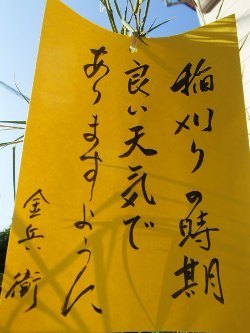 稲刈りの時期
良い天気で
ありますように
金兵衛